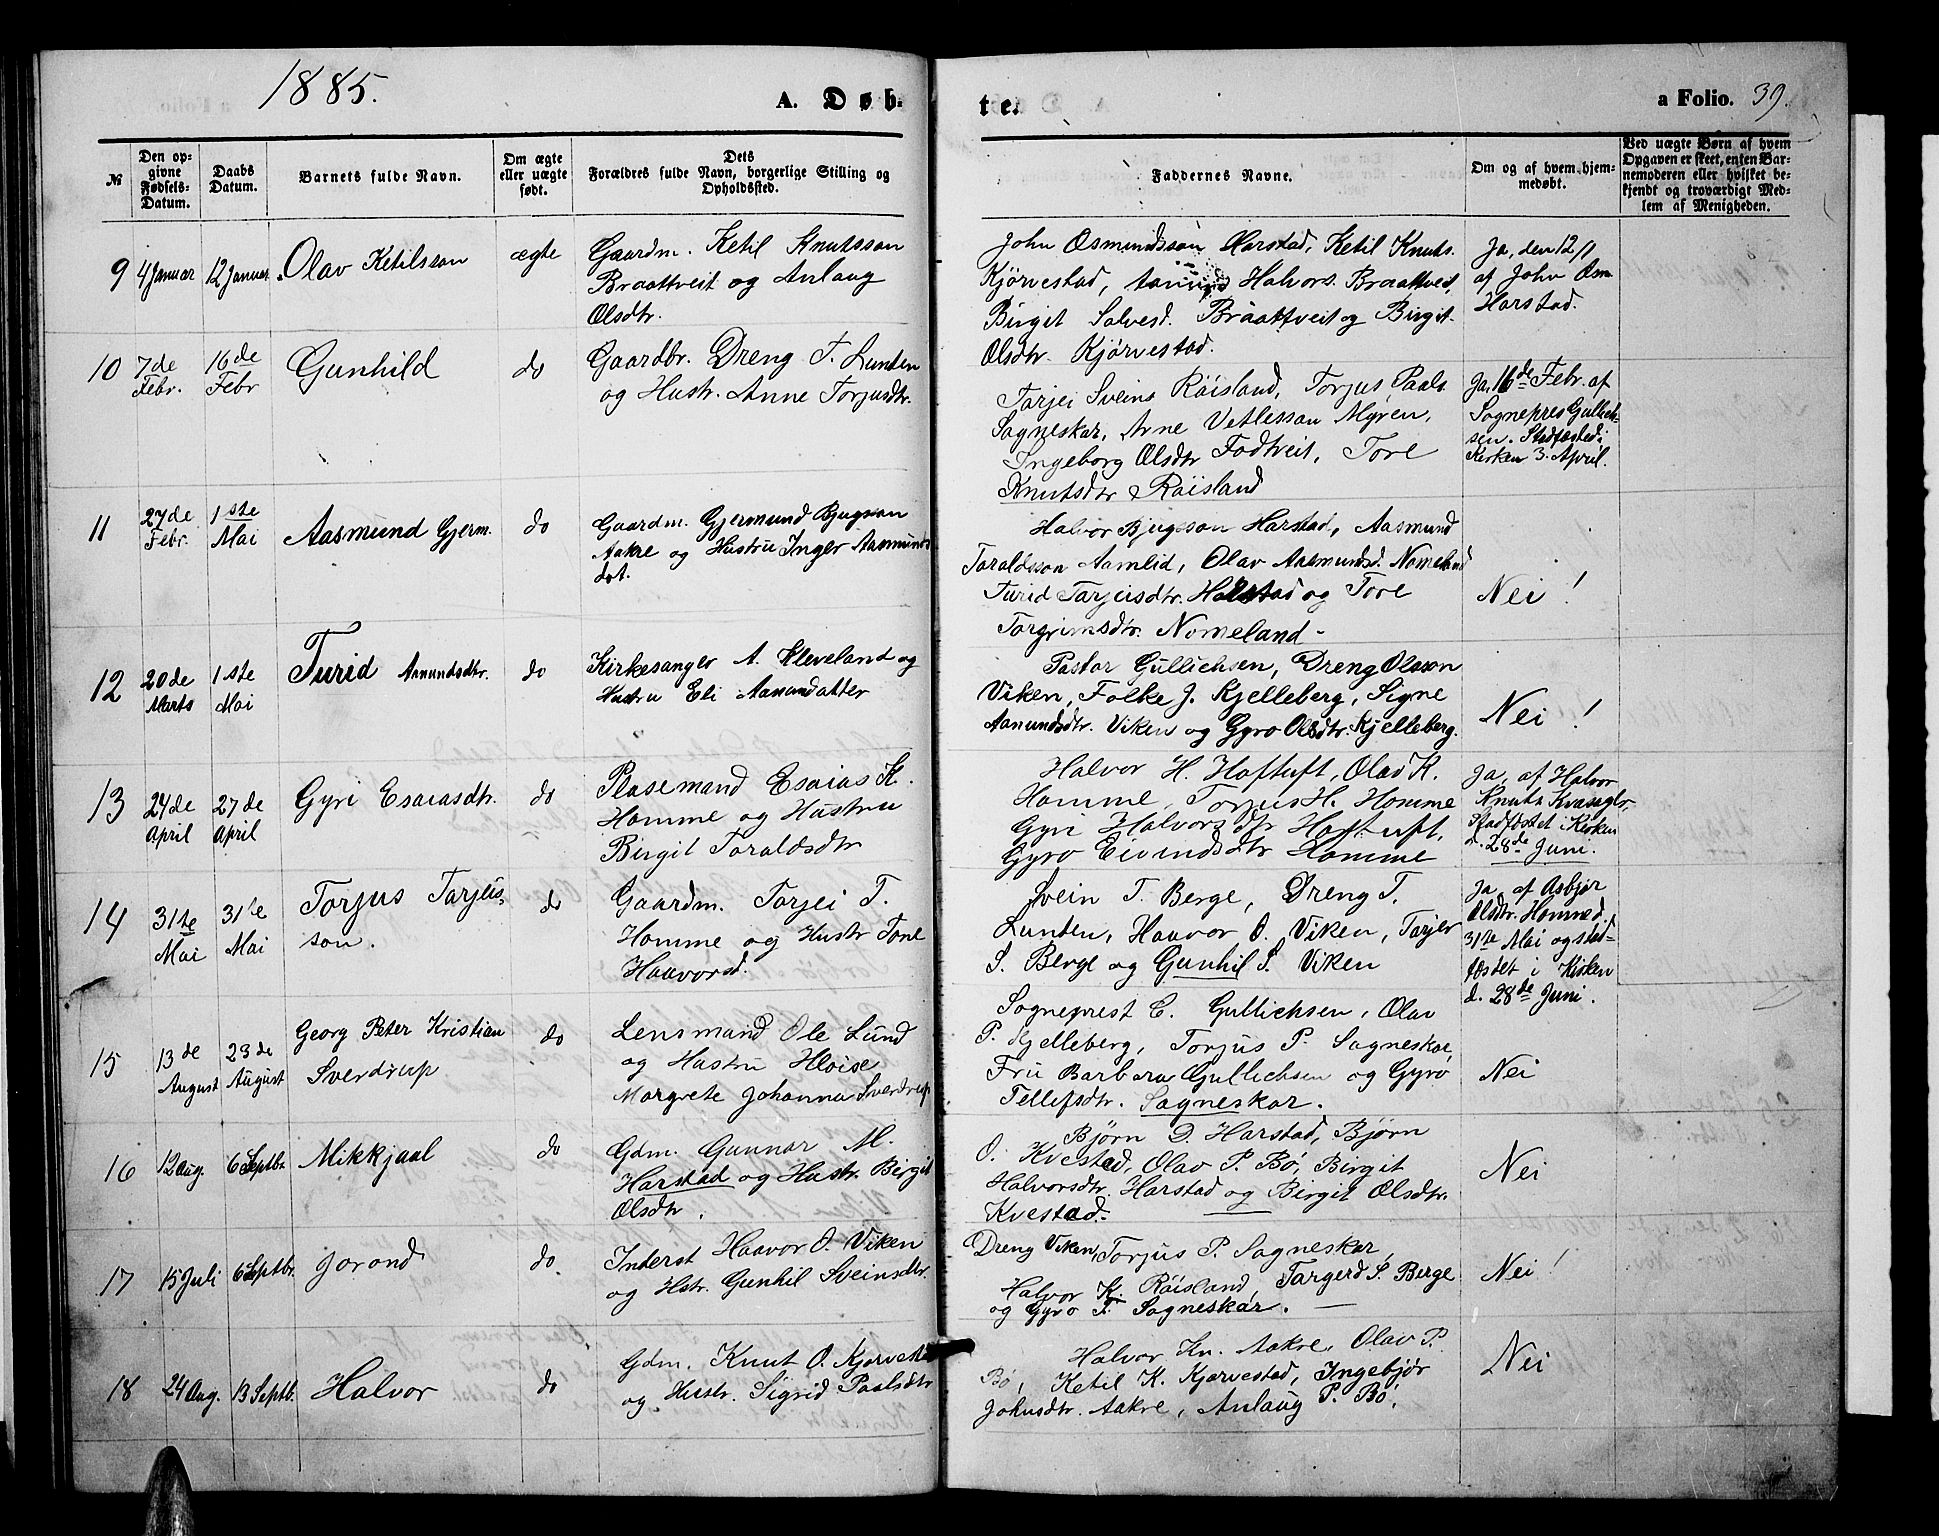 1885.
A. Døb-
te.
a Folio. 39.
№
Den op-
givne
Fødsels-
Datum.
Daabs
Datum.
Barnets fulde Navn.
Om ægte
eller uægte
født.
Dets
Forældres fulde Navn, borgerlige Stilling og
Opholdssted.
Faddernes Navne.
Om og af hvem hjem-
medøbt.
Ved uægte Børn af hvem
Opgaven er skeet, enten Bar-
nemoderen eller hvilket be-
kjendt og troværdigt Med-
lem af Menigheden.
9
4 Januar
12 Januar
Olav Ketilsson
ægte
Gaardm. Ketil Knutsson
Braattveit og Anlaug
Olsdtr.
John Osmundsson Harstad, Ketil Knuts.
Kjörvestad, Halvors. Braattveit,
Birgit Salvesd. Braattveit og Birgit
Olsdtr. Kjørvestad.
Ja, den 12/1
af John Osm.
Harstad.
10
7de
Febr.
16de
Febr
Gunhild
do
Gaardbr. Dreng T. Lunden
og Hustr. Anne Torjusdtr.
Tarjei Sveins Räisland, Torjus Paals
Sagneskar, Arne Vetlesson Myren,
Ingeborg Olsdtr Fodtveit, Tore
Knutsdtr Räisland
Ja, 16de Febr. af
Sognepres Gullich-
sen. Stadfæsted i
Kirken 3. April.
11
27de
Febr.
1ste
Mai
Aasmund Gjerm.
do
Gaardm. Gjermund Bjugson
Aakre og Hustru Inger Aasmunds
dot.
Halvor Bjugsson Harstad, Aasmund
Toraldsson Aamlid, Olav Aasmundsd. Nomeland
Turid Tarjeisdtr. Harstad og Tore
Torgrimsdtr. Nomeland -
Nei!
12
20de
Marts
1ste
Mai
Turid Aanundsdtr.
do
Kirkesanger A. Kleveland og
Hustru Eli Aanundatter
Pastor Gullichsen, Dreng Olsson
Viken, Folke J. Kjelleberg, Signe
Aanundsdtr. Viken og Gyro Olsdtr. Kjelleberg.
Nei!
13
24de
April
27de
April
Gyri Esaiasdtr.
do
Plasemand Esaias K.
Homme og Hustru
Birgit Toraldsdtr
Halvor H. Hoftuft, Olav K.
Homme, Torjus H. Homme
Gyri Halvorsdtr Hoftuft,
Gyro Eivindsdtr Homme
Ja, af Halvor
Knuts Kvasager,
Stadfæstet i Kirken
d. 28de Juni.
14
31te
Mai
31te
Mai
Torjus Tarjeis-
son.
do
Gaardm. Tarjei T.
Homme og Hustr Tone
Haavorsd.
Svein T. Berge, Dreng T.
Lunden, Haavor O. Viken, Tarjer
S. Berge og Gunhil S. Viken
Ja af Asbjør
Olsdtr. Homme d.
31te Mai og stad-
fæstet i Kirken
d. 28de Juni.
15
13de
August
23de
August
Georg Peter Kristian
Sverdrup
do
Lensmand Ole Lund
og Hustru Hloise
Margrete Johanna Sverdrup
Sogneprest E. Gullichsen, Olav
P. Kjelleberg, Torjus P. Sagneskar,
Fru Barbara Gullichsen og Gyro
Tellefsdtr. Sagneskar.
Nei
16
12 Aug.
6 Septbr.
Mikkjaal
do
Gdm. Gunnar M.
Harstad og Hustr. Birgit
Olsdtr.
Bjørn D. Harstad, Bjørn
O. Kvestad, Olav P. Bö, Birgit
Halvorsdtr. Harstad og Birgit Olsdtr.
Kvestad.
Nei
17
15 Juli
6 Septbr.
Jorond
do
Inderst Haavor O. Viken
og Hstr. Gunhil Sveinsdtr.
Dreng Viken, Torjus P. Sagneskar,
Halvor K. Räisland, Targerd S. Berge
og Gyro T. Sagneskar. —
Nei!
18
24 Aug.
13 Septb.
Halvor
do
Gdm. Knut O. Kjørvestad
og Hustr. Sigrid Paalsdtr
Halvor Kn. Aakre, Olav P.
Bö, Ketil K. Kjørvestad, Ingebjør
Johnsdtr. Aakre, Anlaug P. Bö.
Nei